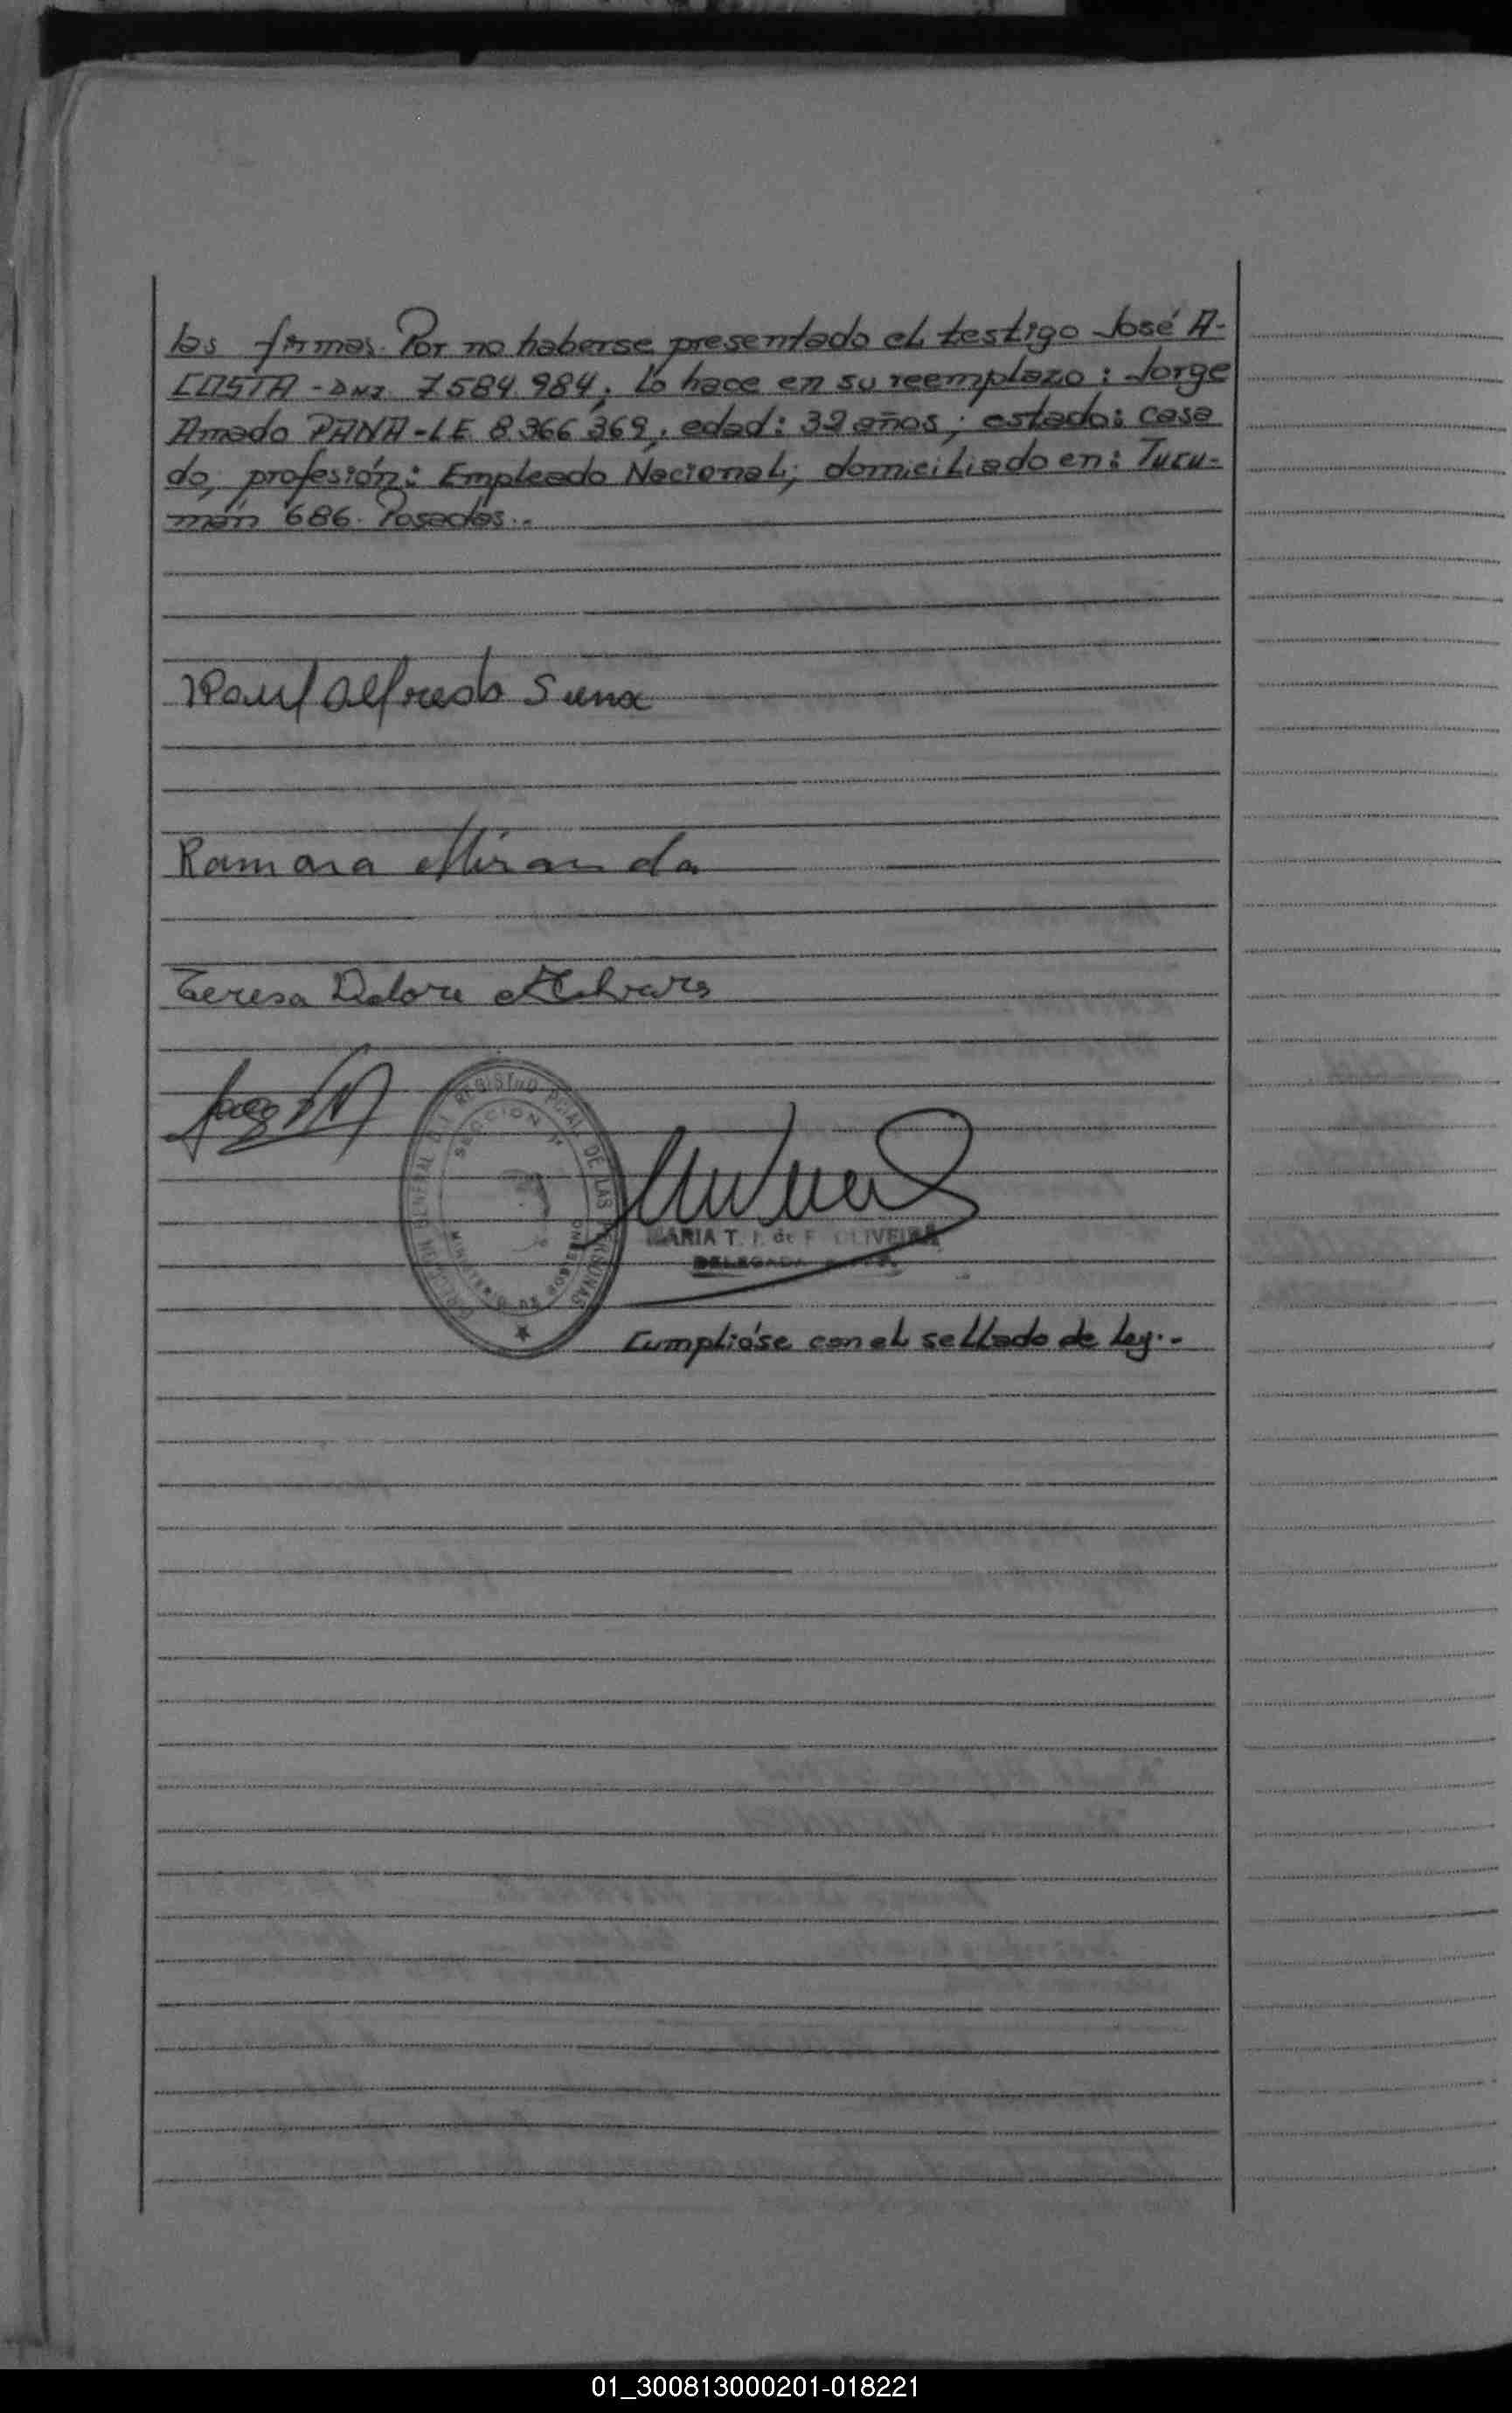 las firmas. Por no haberse presentado el testigo José A-
COSTA - DNI. 7.584.984; lo hace en su reemplazo: Jorge
Amado PANA - LE 8.366.369; edad: 32 años; estado: casa
do; profesión: Empleado Nacional; domiciliado en: Tucu-
mán 686. Posadas.-
Raul Alfredo Suna
Ramona Miranda
Teresa Dolore
REGISTRO PCIAL. DE LAS PERSONAS
DIRECCION GENERAL DEL
SECCION 1ª
MINISTERIO DE GOBIERNO
MARIA T. F. de F. OLIVEIRA
DELEGADA
Cumplióse con el sellado de ley.-
01_300813000201-018221